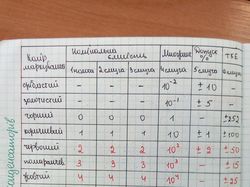 Колір маркування | Номінальна ємність | Множник | Допуск % | ТКЕ
1 смуга | 2 смуга | 3 смуга | 4 смуга | 5 смуга | 6 смуга
сріблястий - - - 10⁻² ± 10 -
золотистий - - - 10⁻¹ ± 5 -
чорний 0 0 0 1 - ±252
коричневий 1 1 1 10 ± 1 ±100
червоний 2 2 2 10² ± 2 ±50
помаранчев. 3 3 3 10³ - ±15
жовтий 4 4 4 10⁴ - ±25